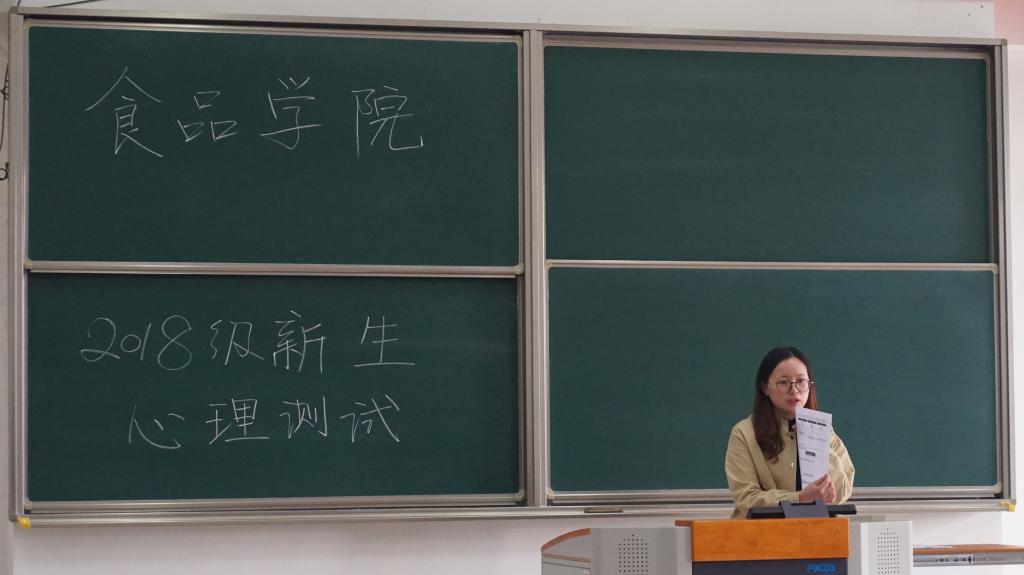 食品学院
2018级新生
心理测试
FOCUS